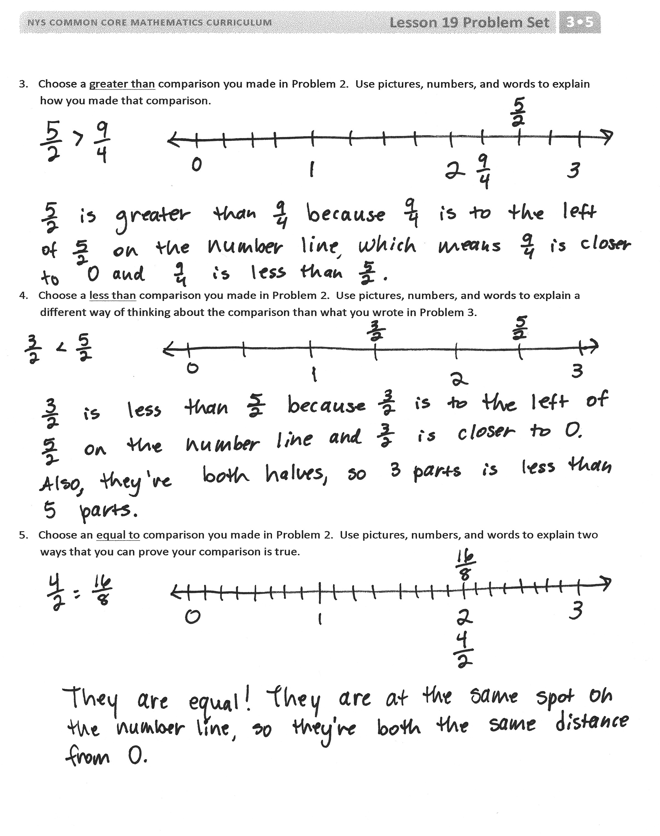 NYS COMMON CORE MATHEMATICS CURRICULUM Lesson 19 Problem Set 3•5
3. Choose a greater than comparison you made in Problem 2. Use pictures, numbers, and words to explain
how you made that comparison.
5/2
5/2 > 9/4
0 1 2 9/4 3
5/2 is greater than 9/4 because 9/4 is to the left
of 5/2 on the number line, which means 9/4 is closer
to 0 and 9/4 is less than 5/2.
4. Choose a less than comparison you made in Problem 2. Use pictures, numbers, and words to explain a
different way of thinking about the comparison than what you wrote in Problem 3.
3/2 5/2
3/2 < 5/2
0 1 2 3
3/2 is less than 5/2 because 3/2 is to the left of
5/2 on the number line and 3/2 is closer to 0.
Also, they're both halves, so 3 parts is less than
5 parts.
5. Choose an equal to comparison you made in Problem 2. Use pictures, numbers, and words to explain two
ways that you can prove your comparison is true.
16/8
4/2 = 16/8
0 1 2 3
4/2
They are equal! They are at the same spot on
the number line, so they're both the same distance
from 0.